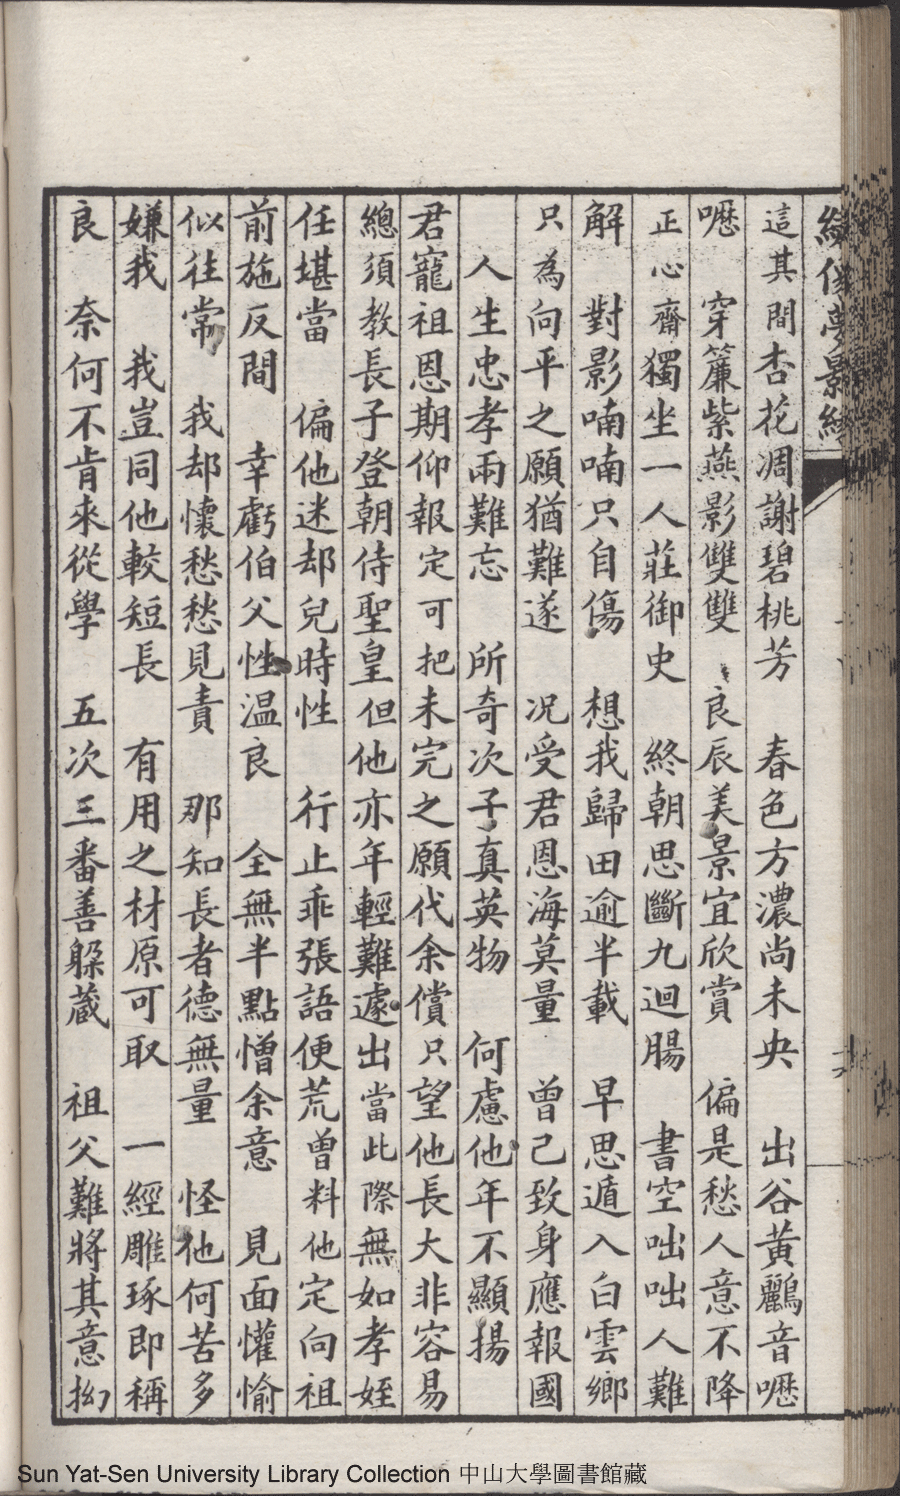 繡像夢影緣
這其間杏花凋謝碧桃芳　春色方濃尚未央　出谷黃鸝音嚦
嚦　穿簾紫燕影雙雙　良辰美景宜欣賞　偏是愁人意不降
正心齋獨坐一人莊御史　終朝思斷九迴腸　書空咄咄人難
解　對影喃喃只自傷　想我歸田逾半載　早思遁入白雲鄉
只為向平之願猶難遂　況受君恩海莫量　曾己致身應報國
人生忠孝兩難忘　所奇次子真英物　何慮他年不顯揚
君寵祖恩期仰報定可把未完之願代余償只望他長大非容易
總須教長子登朝侍聖皇但他亦年輕難遽出當此際無如孝姪
任堪當　偏他迷却兒時性　行止乖張語便荒曾料他定向祖
前施反間　幸虧伯父性温良　全無半點憎余意　見面懽愉
似往常　我却懷愁愁見責　那知長者德無量　怪他何苦多
嫌我　我豈同他較短長　有用之材原可取　一經雕琢即稱
良　奈何不肯來從學　五次三番善躲藏　祖父難將其意拗
Sun Yat-Sen University Library Collection 中山大學圖書館藏